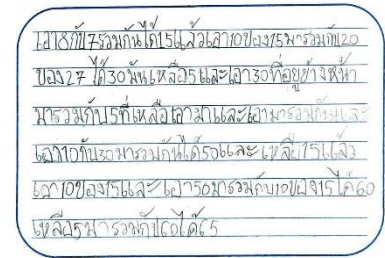 เอา8กับ7รวมกันได้15แล้วเอา10ของ15มารวมกับ20
ของ27 ได้30มันเหลือ5และเอา30ที่อยู่ข้างหน้า
มารวมกับ5ที่เหลือเอามาและเอามารวมกันและ
เอา10กับ30มารวมกันได้50และ เหลือ15แล้ว
เอา10ของ15และเอา50มารวมกับ10ของ15ได้60
เหลือ5มารวมกับ60ได้65